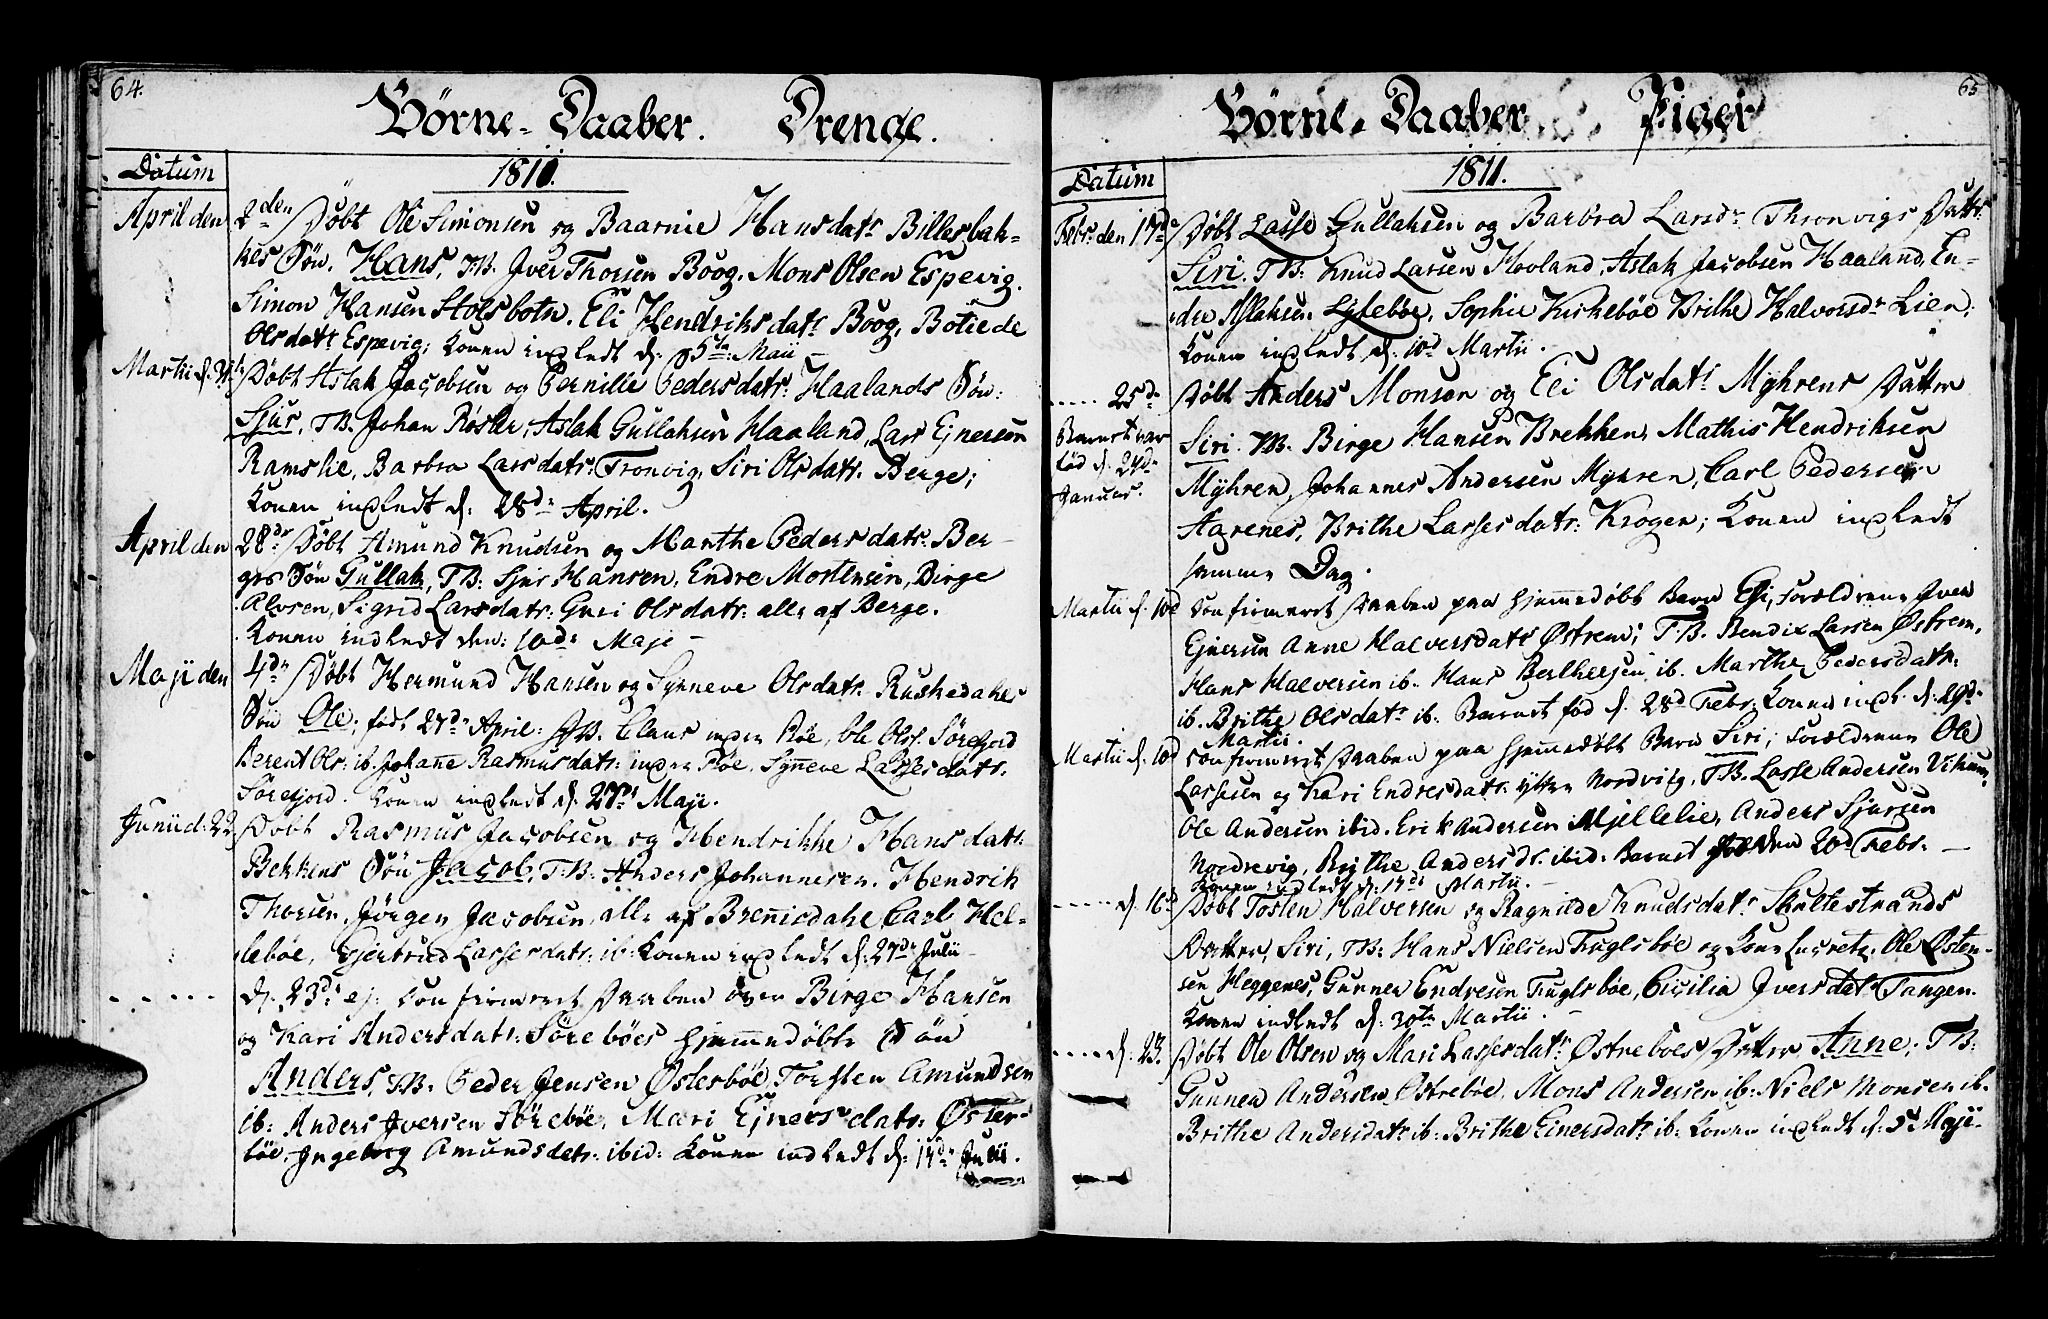 64.
Børne-Daaber. Drenge.
Datum
1811.
April den 2den Døbt Ole Simonsen og Baarnie Hansdatr Billesbak-
kes Søn, Hans, TB. Iver Thorsen Boog, Mons Olsen Espevig.
Simon Hansen Stolsbotn, Eli Hendriksdatr Boog, Botilde
Olsdatr Espevig; Konen indledt d: 5te Maii
Martii d. Døbt Aslak Jacobsen og Pernille Pedersdatr: Haalands Søn:
Sjur, TB. Johan Røsler, Aslak Gullaksen Haaland, Lars Ejnersen
Ramslie, Barbra Larsdatr: Tronvig, Siri Olsdatr. Berge;
Konen indledt d: 28de April.
April den 28de Døbt Amund Knudsen og Marthe Pedersdatr: Ber-
ges Søn Gullak, TB: Sjur Hansen, Endre Mortensen, Birge
Alvsen, Sigrid Larsdatr: Guri Olsdatr: alle af Berge.
Konen indledt den: 10de Maje -
Maji den 4de Døbt Hermund Hansen og Synneve Olsdatr. Ruskedahls
Søn Ole; født 27de April: TB. Claus indre Røe, Ole Ols. Sørefjord
Berent Ols: ib. Johanne Rasmusdatr: indre Røe, Synneve Lassesdatr.
Sørefjord. Konen indledt d. 27de Maje.
Junii d: 22. Døbt Rasmus Jacobsen og Hendrikke Hansdatr:
Bekkens Søn Jacob, TB: Anders Johannesen, Hendrik
Thorsen, Jørgen Jacobsen, alle af Brennisdahl Carl Hel-
lebøe, Gjertrud Lassesdatr: ib: Konen indledt d: 27de Julii
- - - - - d. 23de ej: Confirmeret Daaben over Birge Hansen
og Kari Andersdatr: Sørebøes hjemmedøbte Søn
Anders, TB. Peder Jensen Østerbøe, Torsten Amundsen
ib: Anders Iversen Sørebøe, Mari Ejnersdatr: Øster-
bøe, Ingeborg Amundsdatr: ibid: Konen indledt d: 14de Julii.
65
Børne-Daaber Piger
Datum
1811.
Febr: den 17de Døbt Lasse Gullaksen og Barbra Larsdr Thronvigs Datter
Siri. TB: Knud Larsen Hovland, Aslak Jacobsen Haaland, En-
dre Aslaksen Lylebøe, Sophie Kirkebøe Brithe Halvorsdr Lien;
Konen indledt d: 10d Martii.
..... 25de Døbt Anders Monsen og Eli Olsdatr Myhrens Datter
Barnet var
fød d. 24de
Januar.
Siri. TB. Birge Hansen Brekken, Mathis Hendriksen
Myhren, Johannes Andersen Myhren, Carl Pedersen
Aarenes, Brithe Lassesdatr: Krogen; Konen indledt
samme Dag.
Martii d. 10d Confirmeret Daaben paa hjemmedøbt Barn Eli, Forældrene Iver
Ejnersen Anne Halversdatr Østrem; TB. Bendix Larsen Østrem,
Hans Halversen ib. Hans Berthelsen, ib. Marthe Pedersdatr:
ib. Brithe Olsdatr ib: Barnet fød d. 28d Febr: Konen indl. d. 29de
Martii.
Martii d. 10d Confirmeret Daaben paa hjemmedøbt Barn Siri; Forældrene Ole
Lassesen og Kari Endresdatr: ytre Nordvig, TB. Lasse Andersen Vikum,
Ole Andersen ibid. Erik Andersen Mjellelie, Anders Sjursen
Nordrevig, Brithe Andersdr. ibid: Barnet født den 20d Febr. -
Konen indledt d: 17de Martii. -
..... d. 16d Døbt Tosten Halversen og Ragnilde Knudsdatr Skiltestrands
Datter, Siri, TB: Hans Nielsen Fuglsbøe og Kone Lucretz, Ole Østen-
sen Heggenes, Gunner Endresen Fuglsbøe, Cicilia Iversdatr Tangen.
Konen indledt d: 30te Martii. -
..... d. 23. Døbt Ole Olsen og Mari Lassesdatr Østrebøes Datter, Anne; TB:
Gunner Andersen Østrebøe, Mons Andersen ib: Niels Monsen ib.
Brithe Andersdatr ib: Brithe Einersdatr ib: Konen indledt d: 5d Maje.